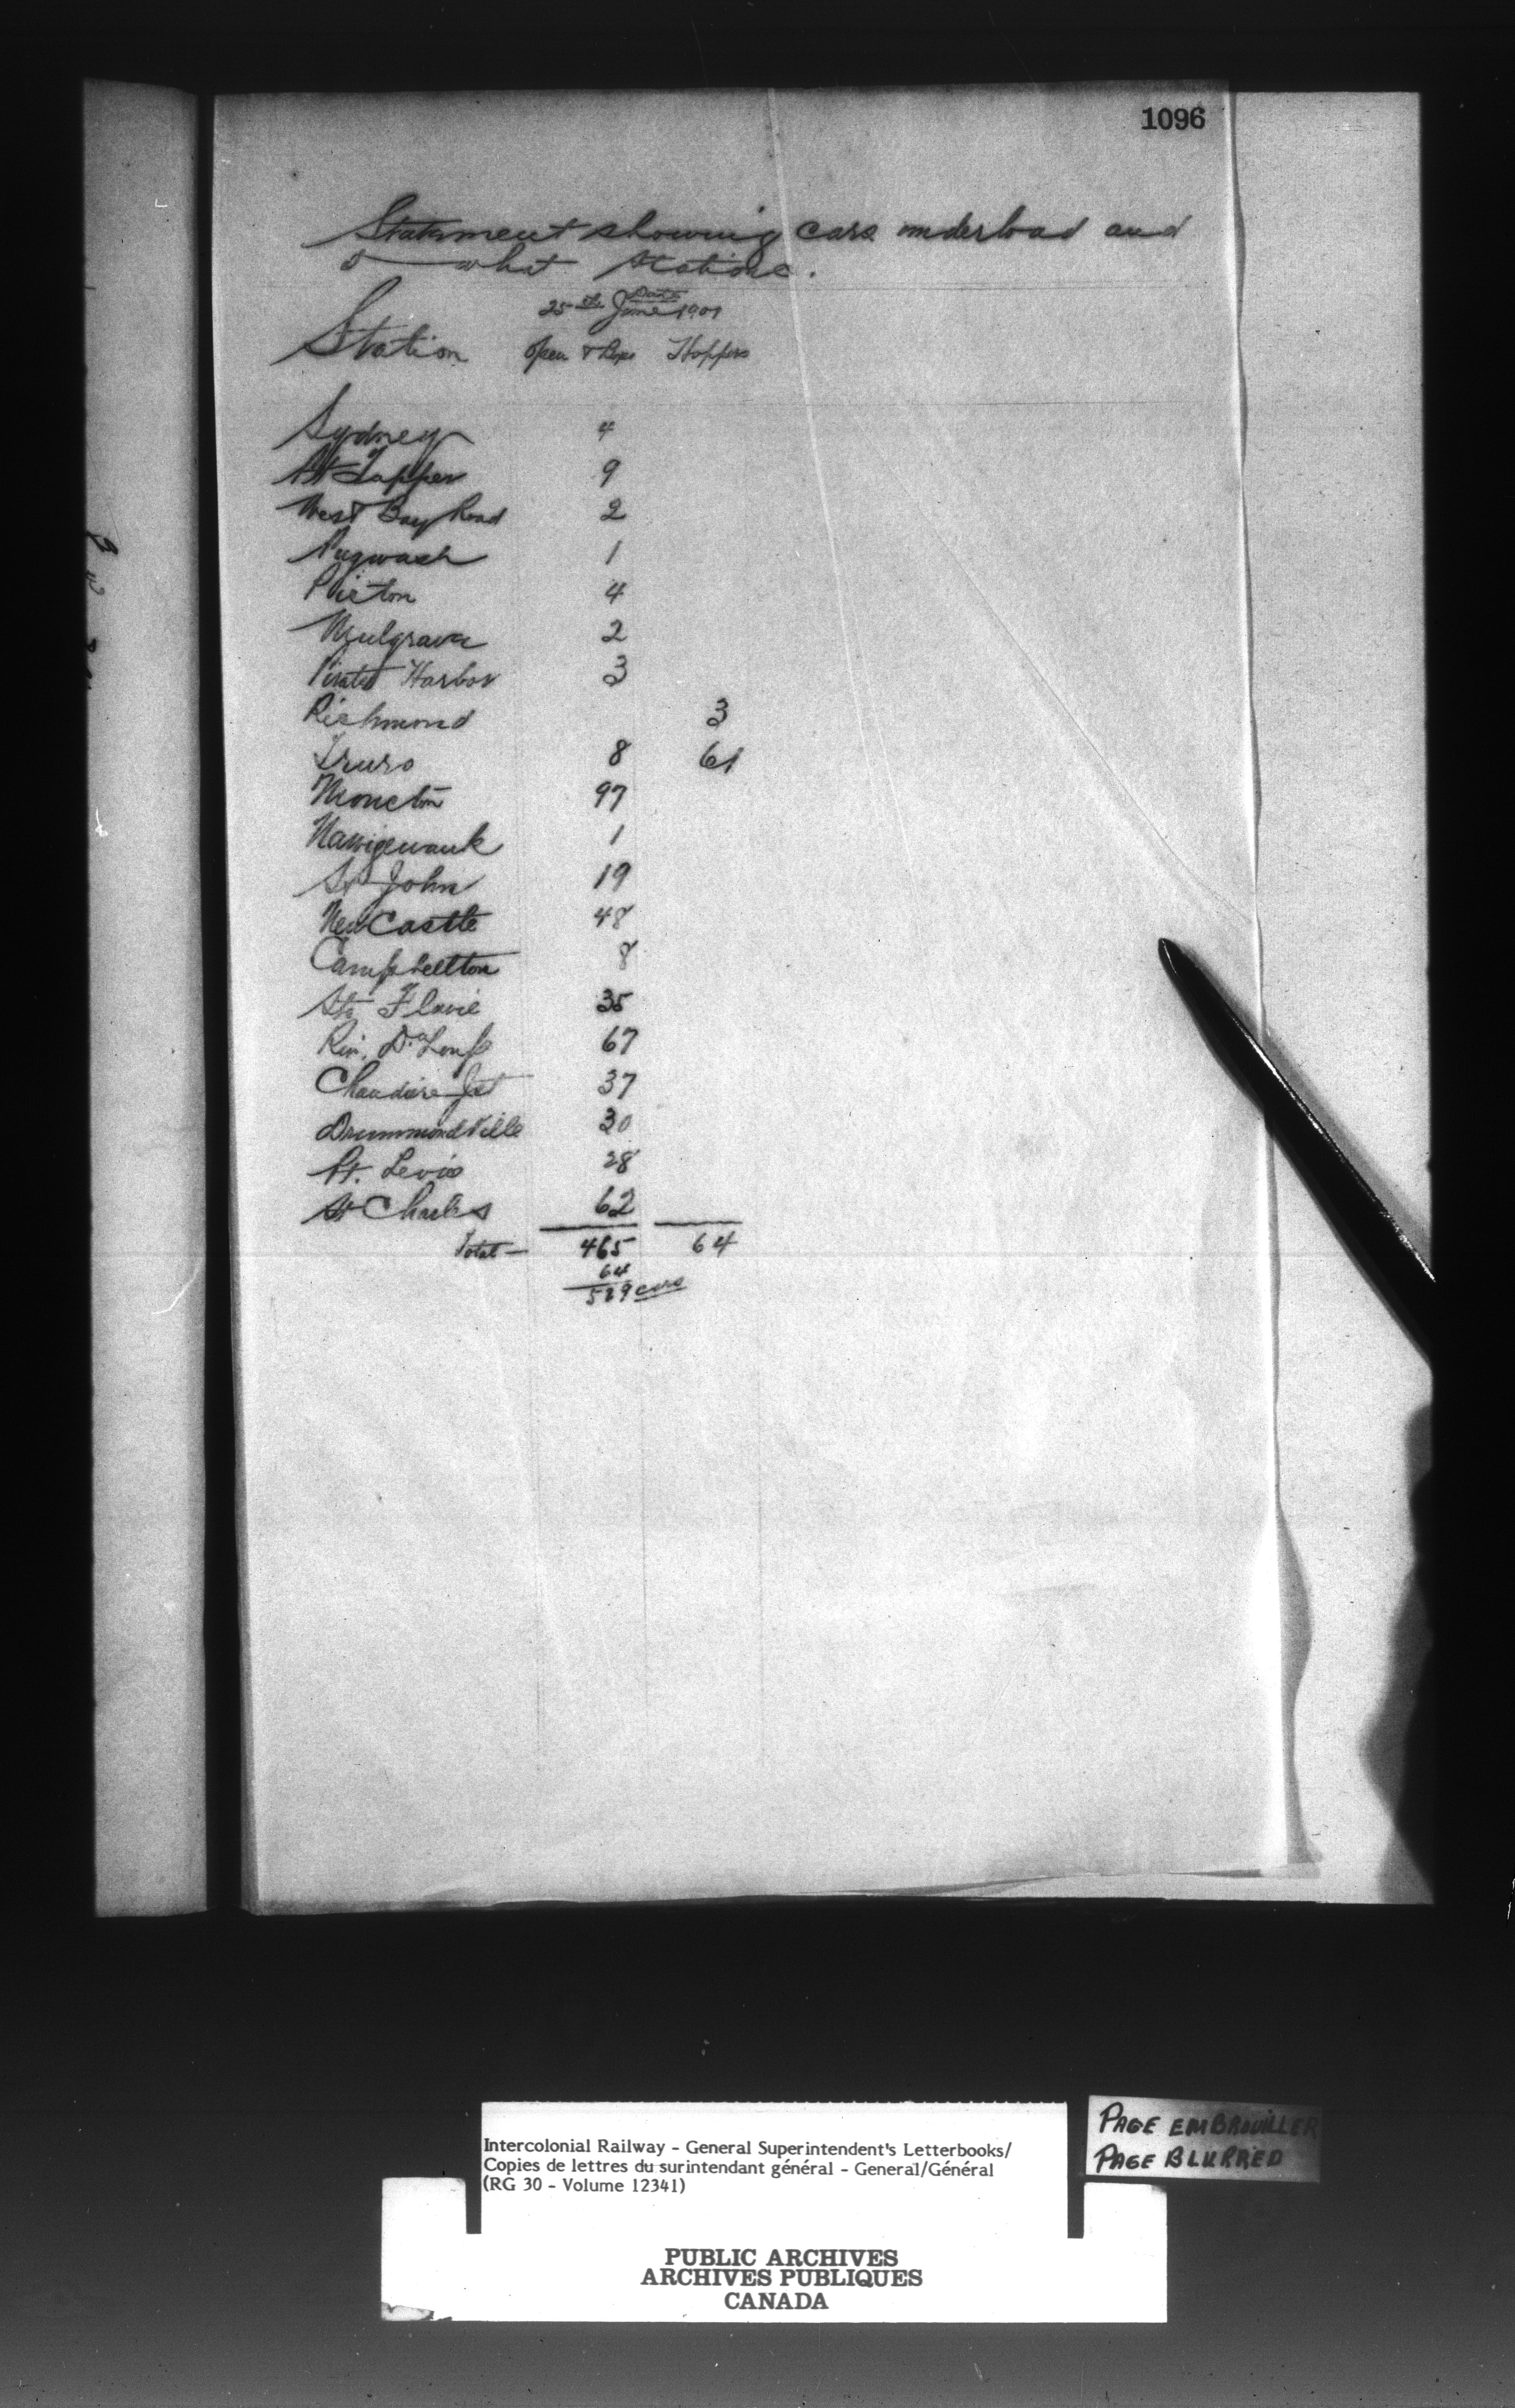 1096
Statement showing cars underload and
what stations.
Date
25th June 1901
Station Open & Hoppers
Sydney 4
Pt Tupper 9
West Bay Road 2
Pugwash 1
Pictou 4
Mulgrave 2
Pirates Harbor 3
Richmond 3
Truro 8 61
Moncton 97
Nauwigewauk 1
St John 19
New Castle 48
Campbellton 8
Ste Flavie 35
Riv. Du Loup 67
Chaudiere Jct 37
DrummondVille 30
Pt. Levis 28
St Charles 62
Total — 465 64
64
529 cars
PAGE EMBROUILLER
PAGE BLURRED
Intercolonial Railway - General Superintendent's Letterbooks/
Copies de lettres du surintendant général - General/Général
(RG 30 - Volume 12341)
PUBLIC ARCHIVES
ARCHIVES PUBLIQUES
CANADA